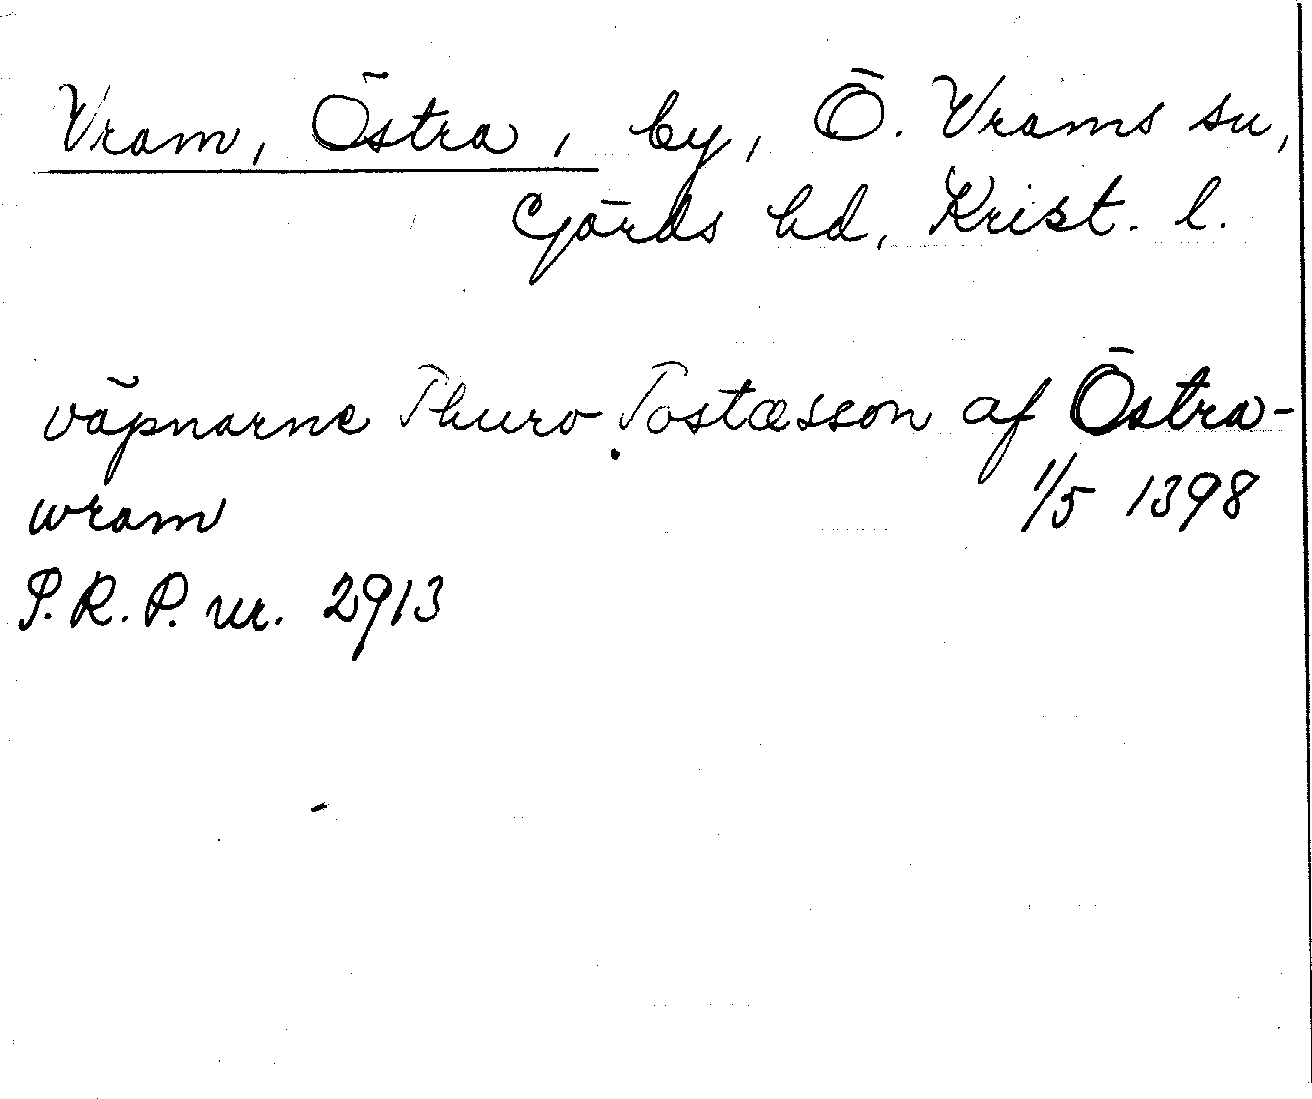 Vram, Östra, by, Ö. Vrams sn,
Gärds hd, Krist. l.
väpnarne Thuro Tostæsson af Östra-
wram 1/5 1398
S.R.P. nr. 2913